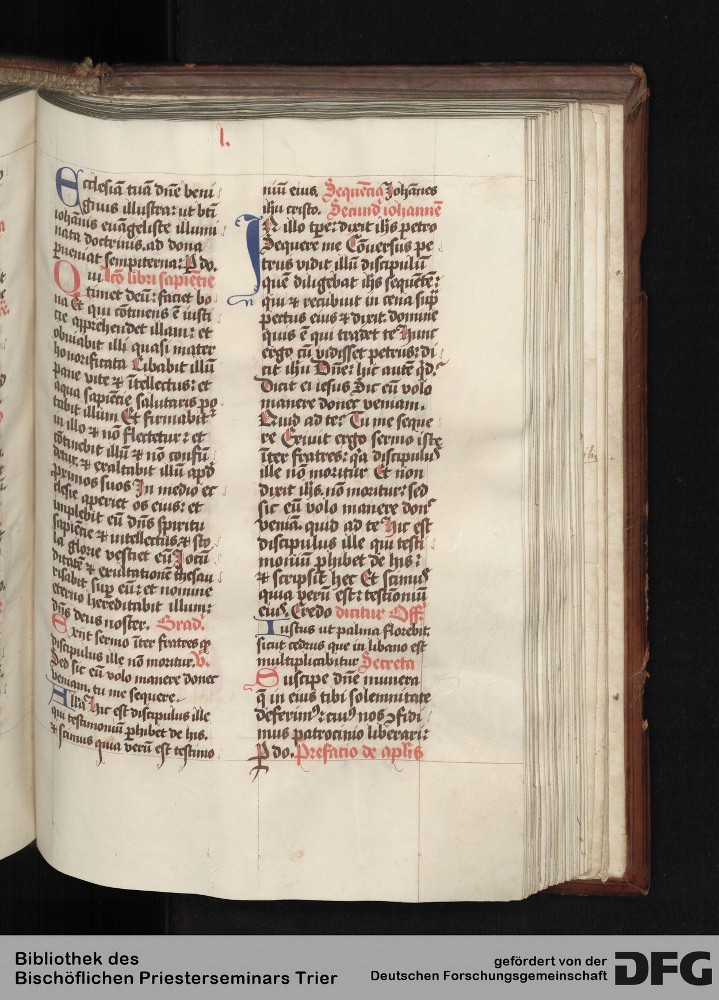 l.
Ecclesiā tuā dn̄e beni
gnus illustra: ut bt̄i
iohānis euāgeliste illumi
nata doctrinis. ad dona
pueniat sempiterna: P do.
Qui lcō libri sapiētie
timet deū: faciet bo
na Et qui cōtinens ē iusti
cie apprehendet illam: et
obuiabit illi quasi mater
honorificata Cibabit illū
pane vite ⁊ ītellectus: et
aqua sapiētie salutaris po
tabit illum Et firmabitᷣ
in illo ⁊ nō flectetur: et
cōtinebit illū ⁊ nō confū
detur. ⁊ exaltabit illū apd̄
proximos suos In medio ec
clesie aperiet os eius: et
implebit eū dn̄s spiritu
sapiētie ⁊ intellectus ⁊ sto
la glorie vestiet eū Iocū
ditatē ⁊ exultationē thesau
risabit sup eū: et nomine
eterno hereditabit illum:
dn̄s deus noster. Grad.
Exiit sermo īter fratres qꝫ
discipulus ille nō moritur. V.
Sed sic eū volo manere donec
veniam. tu me sequere.
Alla Hic est discipulus ille
qui testimoniū phibet de his.
⁊ scimus quia verū est testimo
niū eius. Sequētia Iohānes
ihu cristo. Secund iohannē
IN illo tpe: dixit ihs petro
Sequere me Cōuersus pe
trus vidit illū discipulū
quē diligebat ihs sequētē:
qui ⁊ recubuit in cena sup̄
pectus eius ⁊ dixit. domine
quis ē qui tradet te Hunc
ergo cū vidisset petrus: di
cit ihu Dn̄e: hic autē qd.
Dicit ei iesus Sic eū volo
manere donec veniam.
Quid ad te: Tu me seque
re Exiuit ergo sermo iste
īter fratres: qa discipulus
ille nō moritur Et non
dixit ihs. nō moritur: sed
sic eū volo manere donᷣ
veniā. quid ad te Hic est
discipulus ille qui testi
moniū phibet de his:
⁊ scripsit hec Et scimus
quia verū est: testimoniū
eius. Credo dicitur Off
Iustus ut palma florebit.
sicut cedrus que in libano est
multiplicabitur Secreta
Suscipe dn̄e munera
q̄ in eius tibi solemnitate
deferimus: cuius nos ꝯfidi
mus patrocinio liberari:
P do. Prefatio de apl̄is
Bibliothek des
Bischöflichen Priesterseminars Trier
gefördert von der
Deutschen Forschungsgemeinschaft
DFG